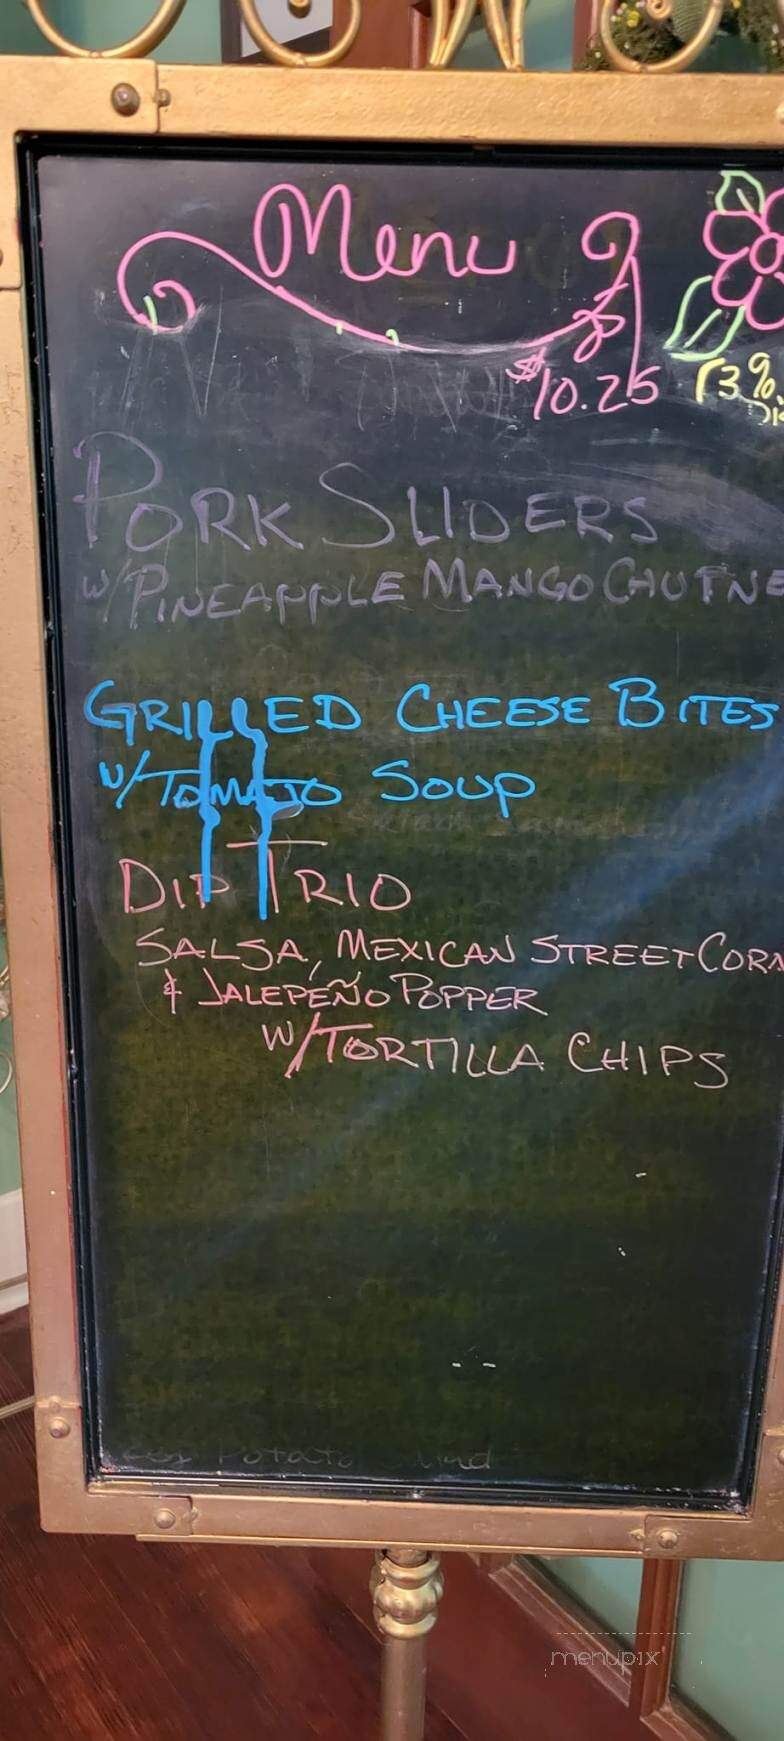 Menu
$10.25
3%
PORK SLIDERS
W/PINEAPPLE MANGO CHUTNE
GRILLED CHEESE BITES
W/TOMATO SOUP
DIP TRIO
SALSA, MEXICAN STREET CORN
& JALEPEÑO POPPER
W/TORTILLA CHIPS
menupix